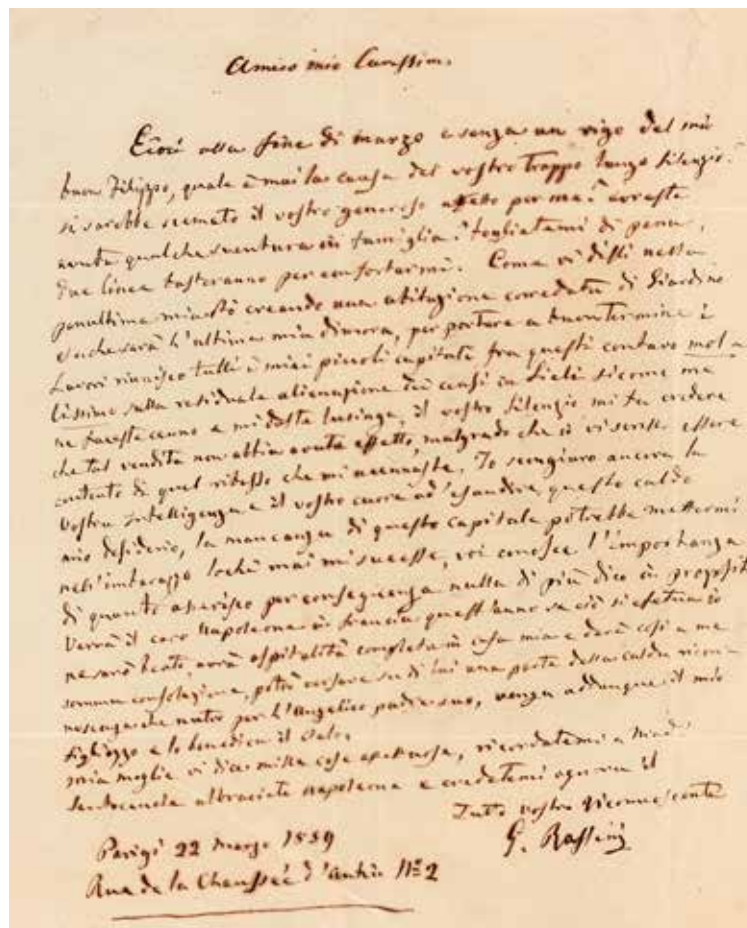 Amico mio Carissimo
Eccoci alla fine di marzo e senza un rigo del mio
buon Filippo, quale è mai la causa del vostro troppo lungo silenzio?
si sarebbe scemato il vostro generoso affetto per me? avreste
avuta qualche sventura in famiglia? toglietemi di pena,
due linee basteranno per confortarmi. Come vi dissi nella
penultima mia stò creando una abitazione corredata di Giardino
e che sarà l'ultima mia dimora, per portare a buon termine i
Lavori riunisco tutti i miei piccoli capitali fra questi contavo mol-
tissimo sulla residuale alienazione dei censi in siccome me
ne faceste cenno e mi deste lusinga, il vostro silenzio mi fa credere
che tal vendita non abbia avuta effetto, malgrado che io vi scrissi essere
contento di quel ribasso che mi accennaste. Io scongiuro ancora la
vostra intelligenza e il vostro cuore ad esaudire questo caldo
mio desiderio, la mancanza di questo capitale potrebbe mettermi
nell'imbarazzo locchè mai mi successe, voi conoscete l'importanza
di quanto asserisco per conseguenza nulla di più dico in proposito
Verrà il caro Napoleone in francia quest'anno? se ciò si efetua io
ne sarò beato, avrà ospitalità completa in casa mia e darà così a me
somma consolazione, potrò versare su di lui una parte della calda ricono-
scenza che nutro per l'Angelico padre suo, venga addunque il mio
figliozzo e lo benedica il Cielo.
mia moglie vi dice mille cose affettuose, ricordatemi a
abbracciate Napoleone e credetemi ognora il
Tutto vostro Riconoscente
G. Rossini
Parigi 22 Marzo 1859
Rue de la Chaussée d'Antin N° 2